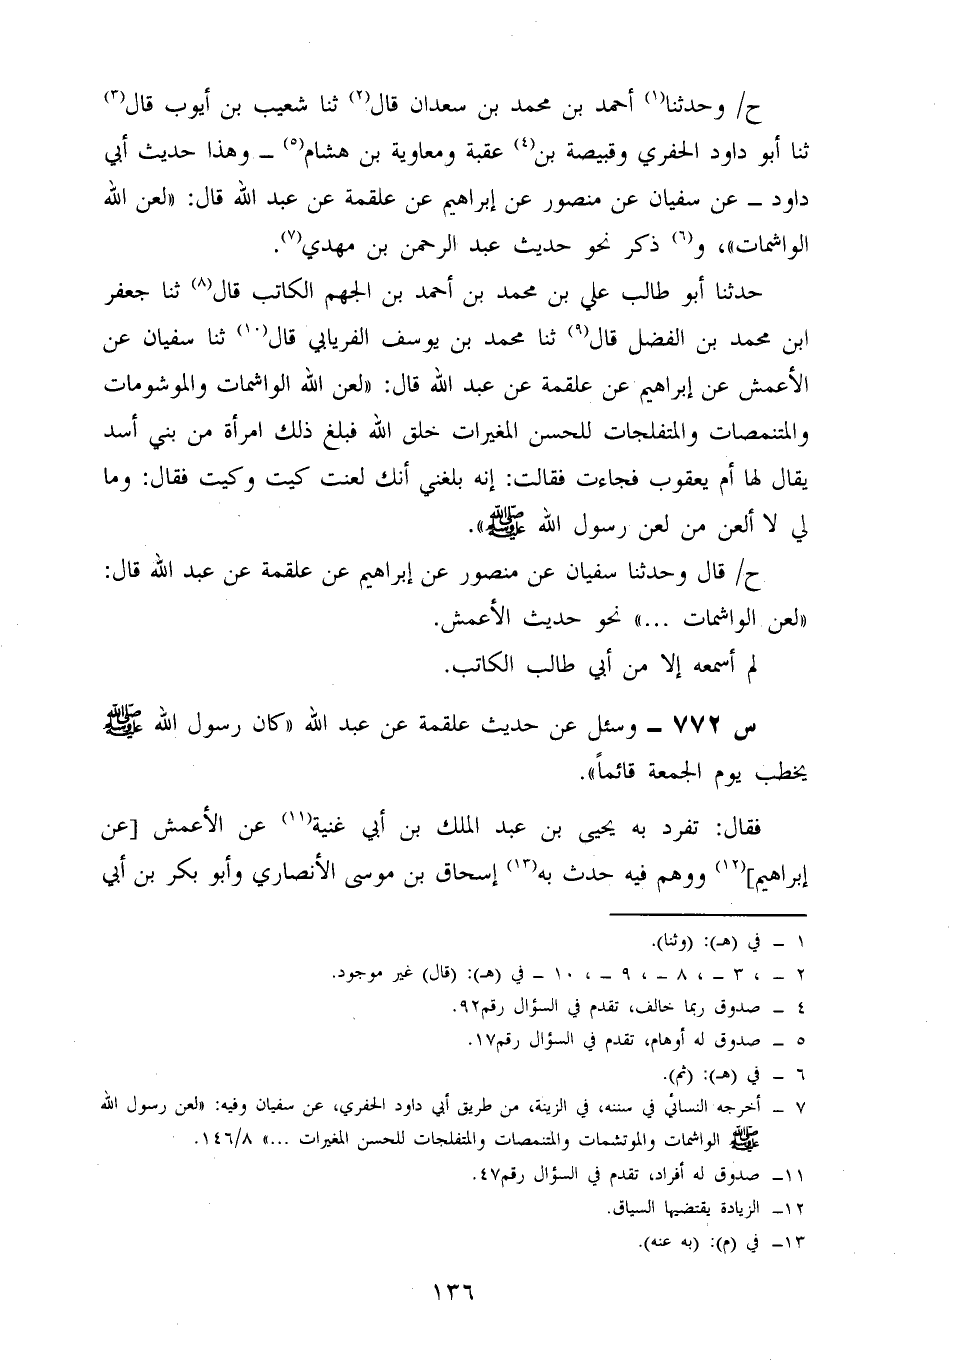 ح/ وحدثنا(١) أحمد بن محمد بن سعدان قال(٢) ثنا شعيب بن أيوب قال(٣)
ثنا أبو داود الحفري وقبيصة بن(٤) عقبة ومعاوية بن هشام(٥) ـ وهذا حديث أبي
داود ـ عن سفيان عن منصور عن إبراهيم عن علقمة عن عبد الله قال: «لعن الله
الواشمات»، و(٦) ذكر نحو حديث عبد الرحمن بن مهدي(٧).
حدثنا أبو طالب علي بن محمد بن أحمد بن الجهم الكاتب قال(٨) ثنا جعفر
ابن محمد بن الفضل قال(٩) ثنا محمد بن يوسف الفريابي قال(١٠) ثنا سفيان عن
الأعمش عن إبراهيم عن علقمة عن عبد الله قال: «لعن الله الواشمات والموشومات
والمتنمصات والمتفلجات للحسن المغيرات خلق الله فبلغ ذلك امرأة من بني أسد
يقال لها أم يعقوب فجاءت فقالت: إنه بلغني أنك لعنت كيت وكيت فقال: وما
لي لا ألعن من لعن رسول الله ﷺ».
ح/ قال وحدثنا سفيان عن منصور عن إبراهيم عن علقمة عن عبد الله قال:
«لعن الواشمات ...» نحو حديث الأعمش.
لم أسمعه إلا من أبي طالب الكاتب.
س ٧٧٢ ـ وسئل عن حديث علقمة عن عبد الله «كان رسول الله ﷺ
يخطب يوم الجمعة قائماً».
فقال: تفرد به يحيى بن عبد الملك بن أبي غنية(١١) عن الأعمش [عن
إبراهيم](١٢) ووهم فيه حدث به(١٣) إسحاق بن موسى الأنصاري وأبو بكر بن أبي
١ ـ في (هـ): (وثنا).
٢ ـ ، ٣ ـ ، ٨ ـ ، ٩ ـ ، ١٠ ـ في (هـ): (قال) غير موجود.
٤ ـ صدوق ربما خالف، تقدم في السؤال رقم٩٢.
٥ ـ صدوق له أوهام، تقدم في السؤال رقم١٧.
٦ ـ في (هـ): (ثم).
٧ ـ أخرجه النسائي في سننه، في الزينة، من طريق أبي داود الحفري، عن سفيان وفيه: «لعن رسول الله
ﷺ الواشمات والموتشمات والمتنمصات والمتفلجات للحسن المغيرات ...» ١٤٦/٨.
١١ـ صدوق له أفراد، تقدم في السؤال رقم٤٧.
١٢ـ الزيادة يقتضيها السياق.
١٣ـ في (م): (به عنه).
١٣٦